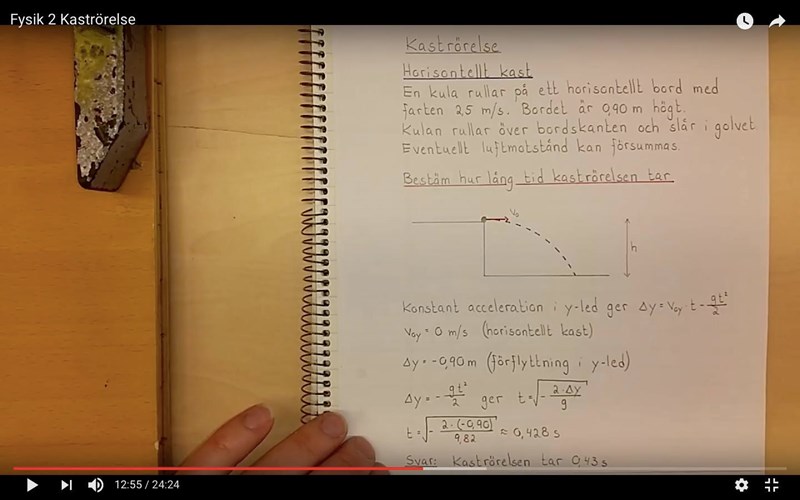 Fysik 2 Kaströrelse
Kaströrelse
Horisontellt kast
En kula rullar på ett horisontellt bord med
farten 2,5 m/s. Bordet är 0,90 m högt.
Kulan rullar över bordskanten och slår i golvet.
Eventuellt luftmotstånd kan försummas.
Bestäm hur lång tid kaströrelsen tar
v₀
h
Konstant acceleration i y-led ger Δy = v₀y · t - gt²/2
v₀y = 0 m/s (horisontellt kast)
Δy = -0,90 m (förflyttning i y-led)
Δy = - gt²/2 ger t = √(- 2·Δy/g)
t = √(- 2·(-0,90)/9,82) ≈ 0,428 s
Svar: Kaströrelsen tar 0,43 s
12:55 / 24:24